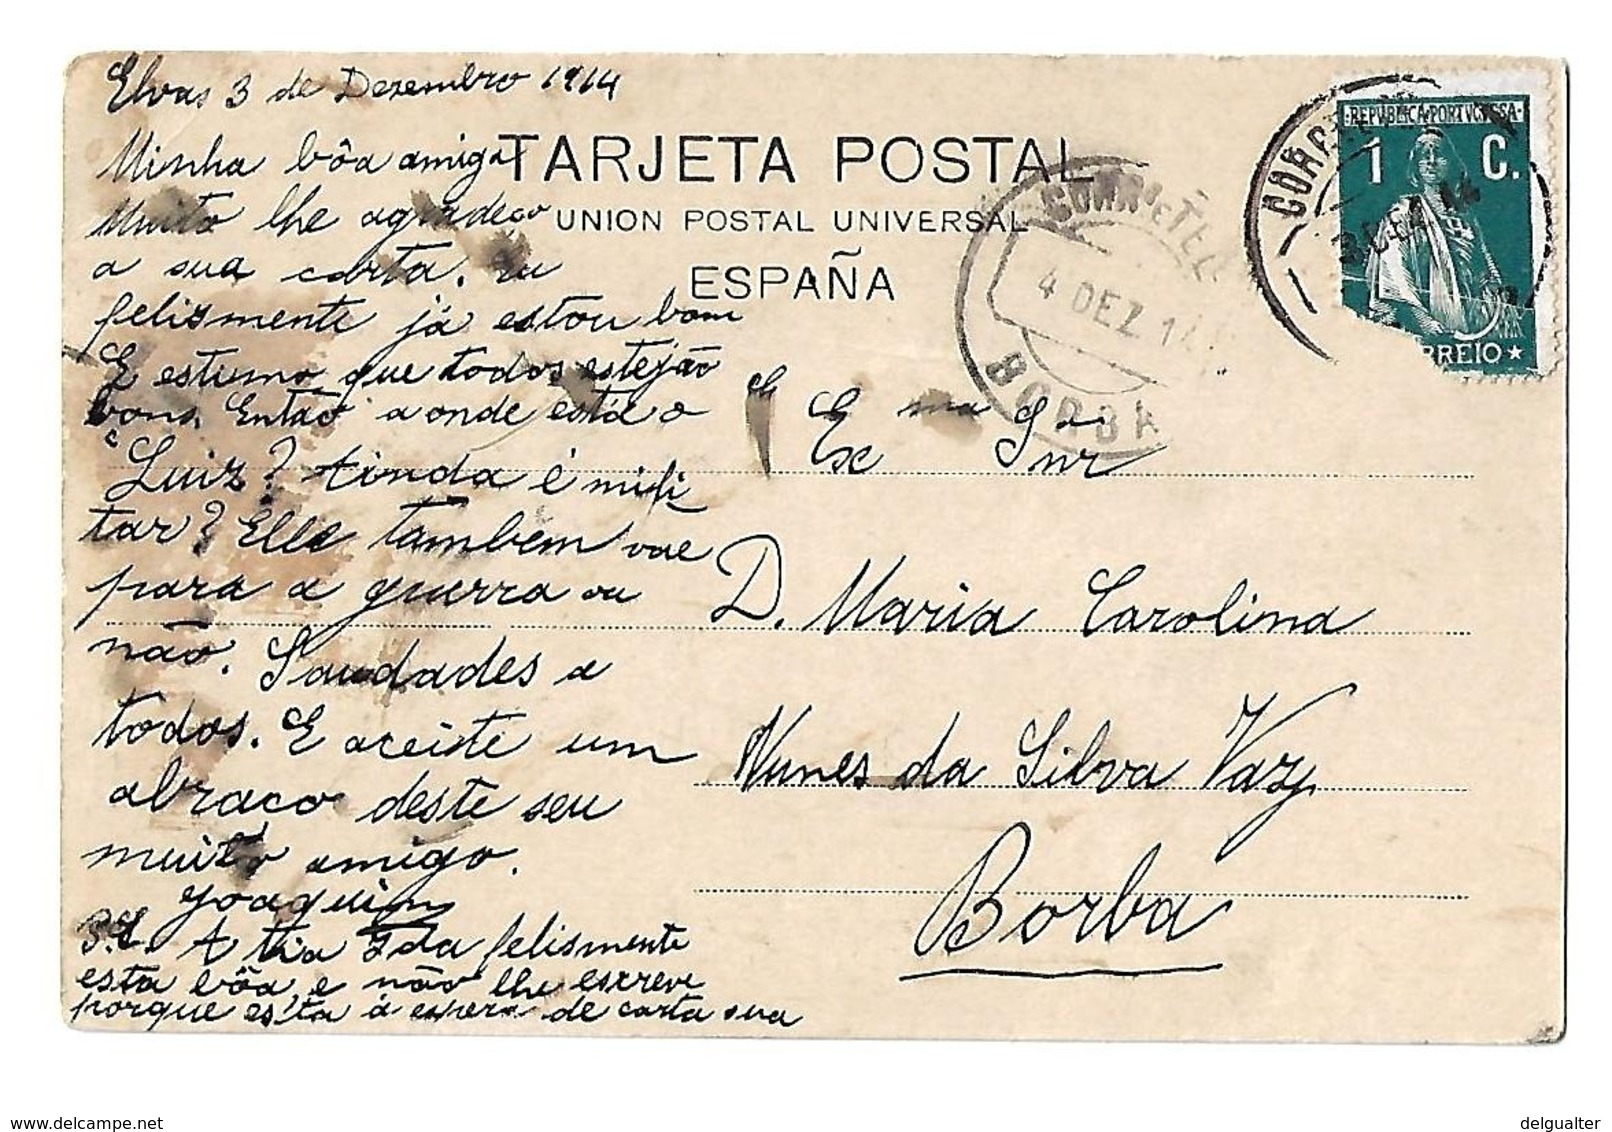 Elvas 3 de Dezembro 1914
Minha bôa amiga
Muito lhe agradeço
a sua carta. Eu
felismente já estou bom
E estimo que todos estejão
bons. Então aonde está o
Luiz? Ainda é mili
tar? Elle tambem vae
para a guerra ou
não. Saudades a
todos. E aceite um
abraco deste seu
muito amigo.
Joaquim
P.S. A tia Ida felismente
esta bôa e não lhe escreve
porque esta á espera de carta sua
TARJETA POSTAL
UNION POSTAL UNIVERSAL
ESPAÑA
Exma Snra
D. Maria Carolina
Nunes da Silva Vaz
Borba
4 DEZ 14
BORBA
REPUBLICA PORTVGVESA
1 C.
CORREIO
delgualter